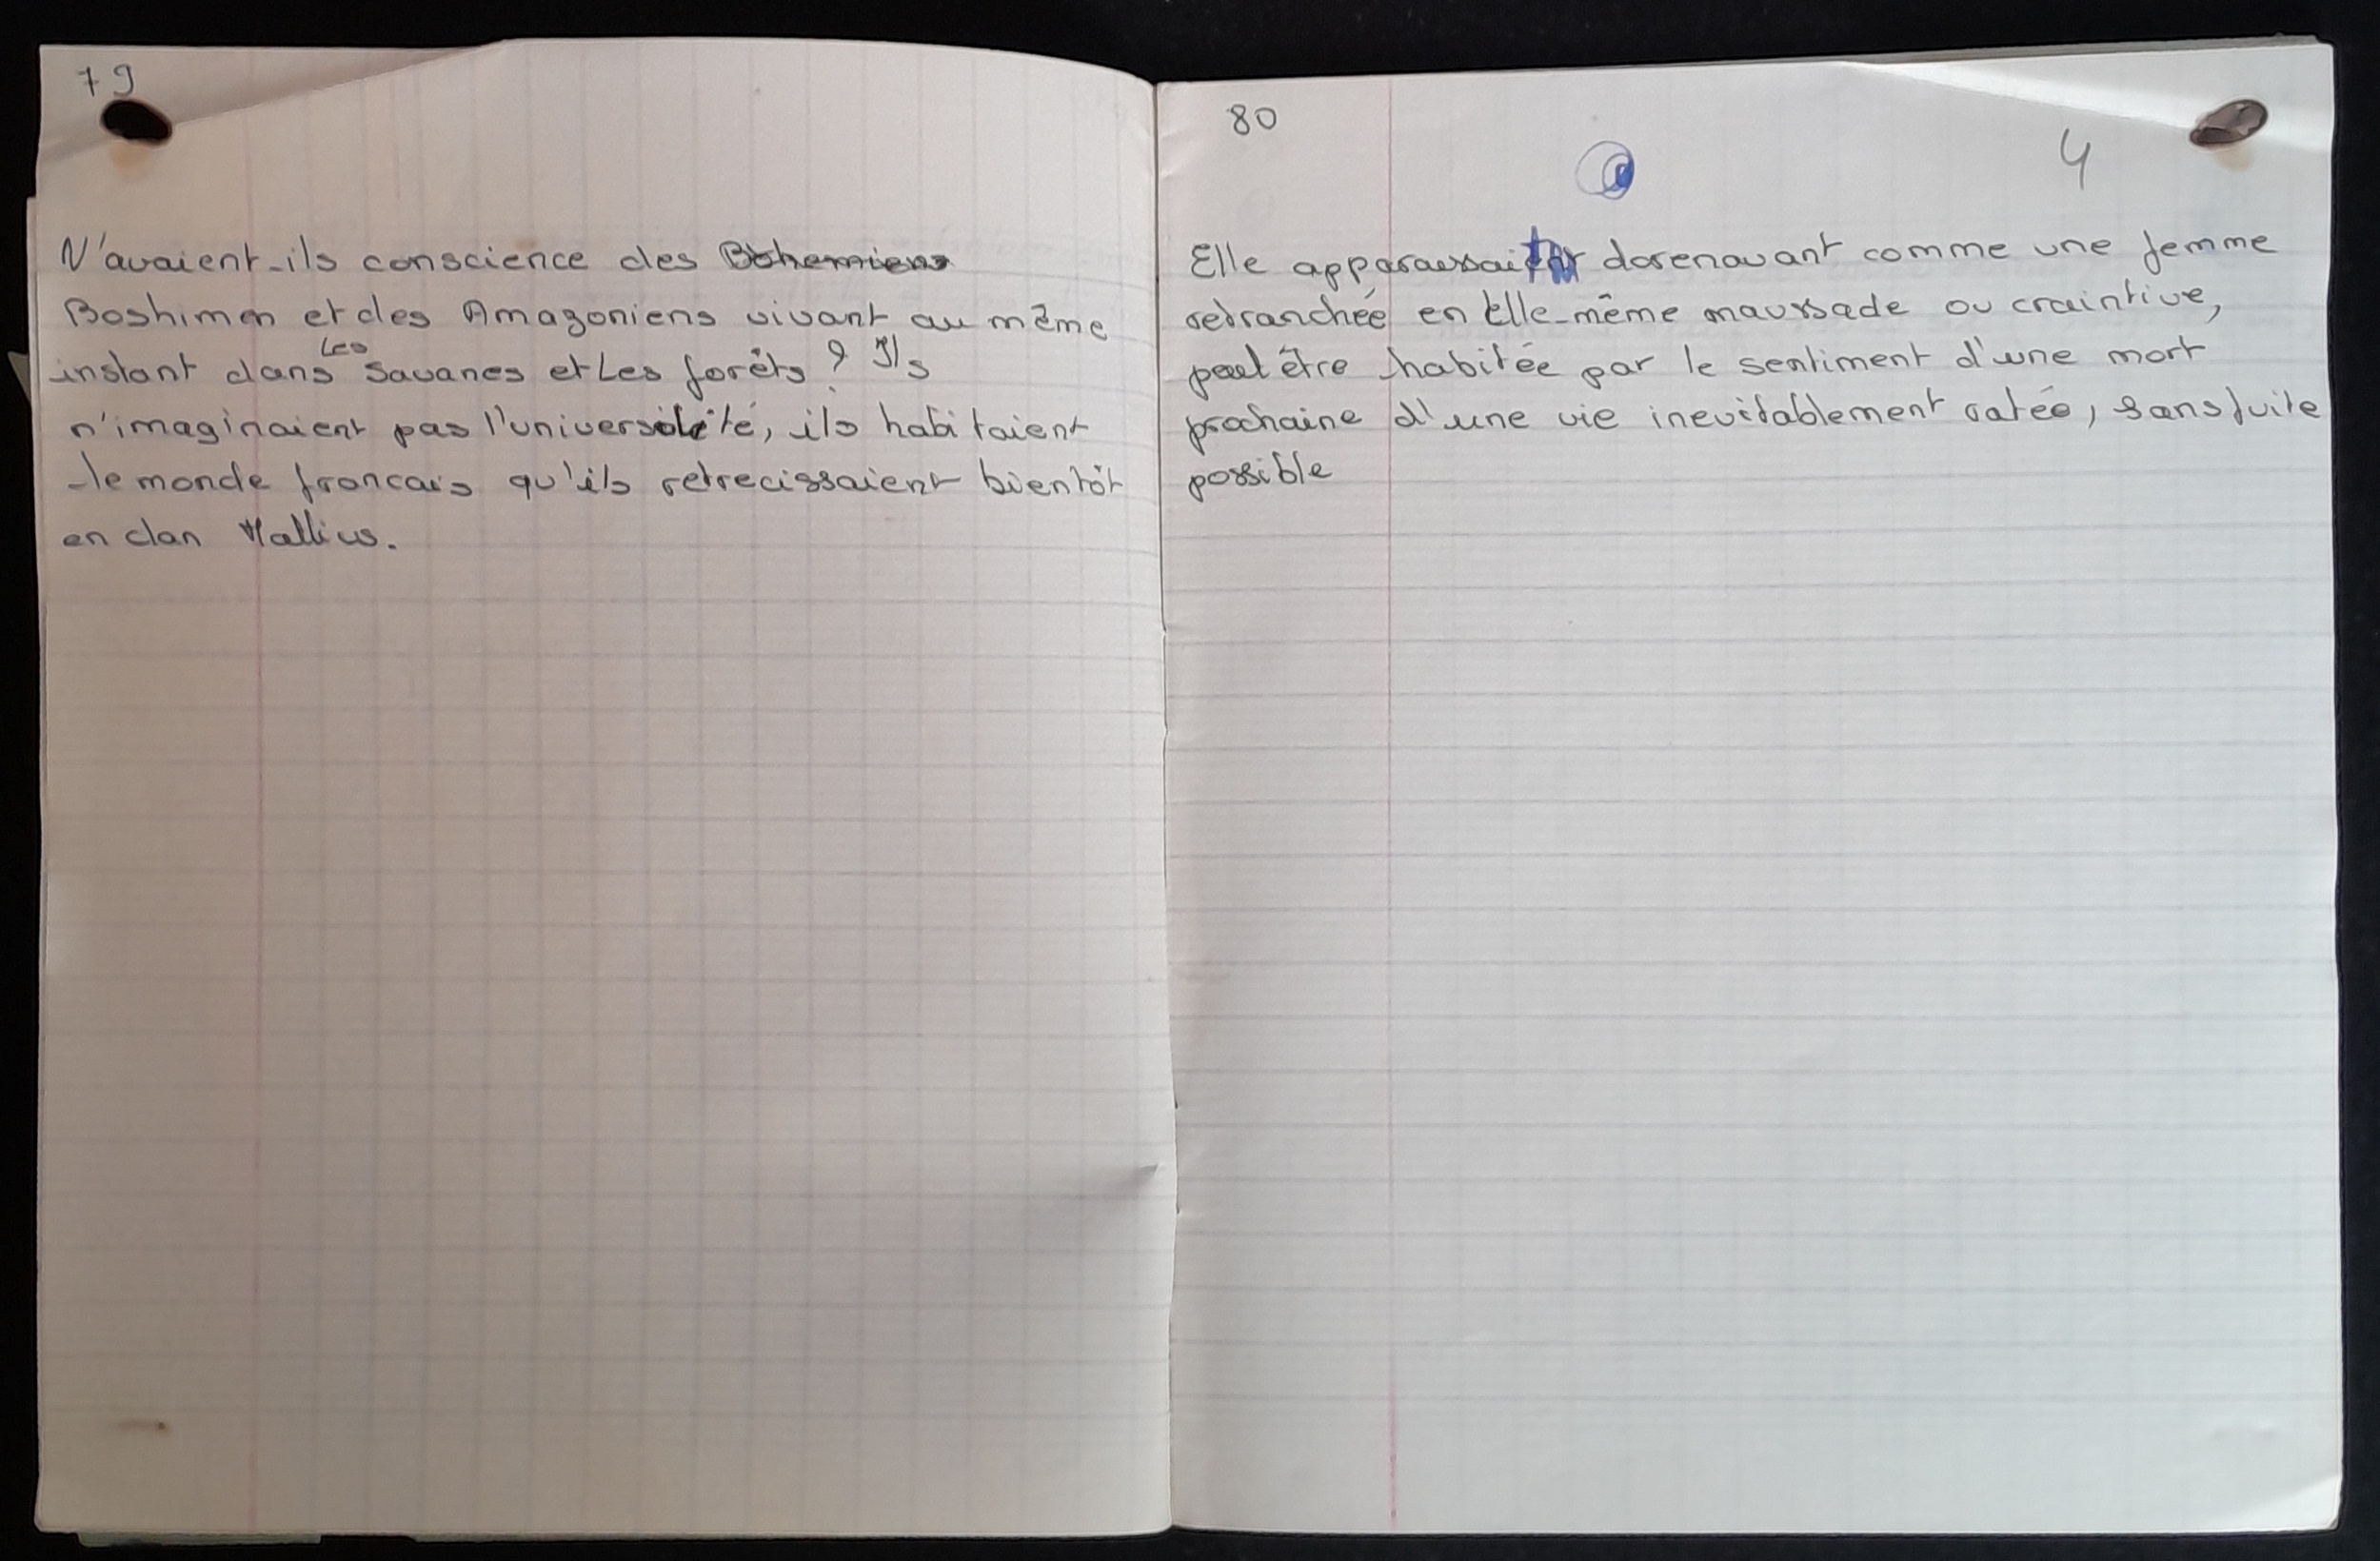 79
N'avaient-ils conscience des Bohemiens
Boshimen et des Amazoniens vivant au même
instant dans les savanes et les forêts ? Ils
n'imaginaient pas l'universalité, ils habitaient
le monde francais qu'ils retrecissaient bientôt
en clan
80
4
Elle apparaissait dorenavant comme une femme
retranchée en elle-même maussade ou craintive,
peut être habitée par le sentiment d'une mort
prochaine d'une vie inevitablement ratée, sans fuite
possible